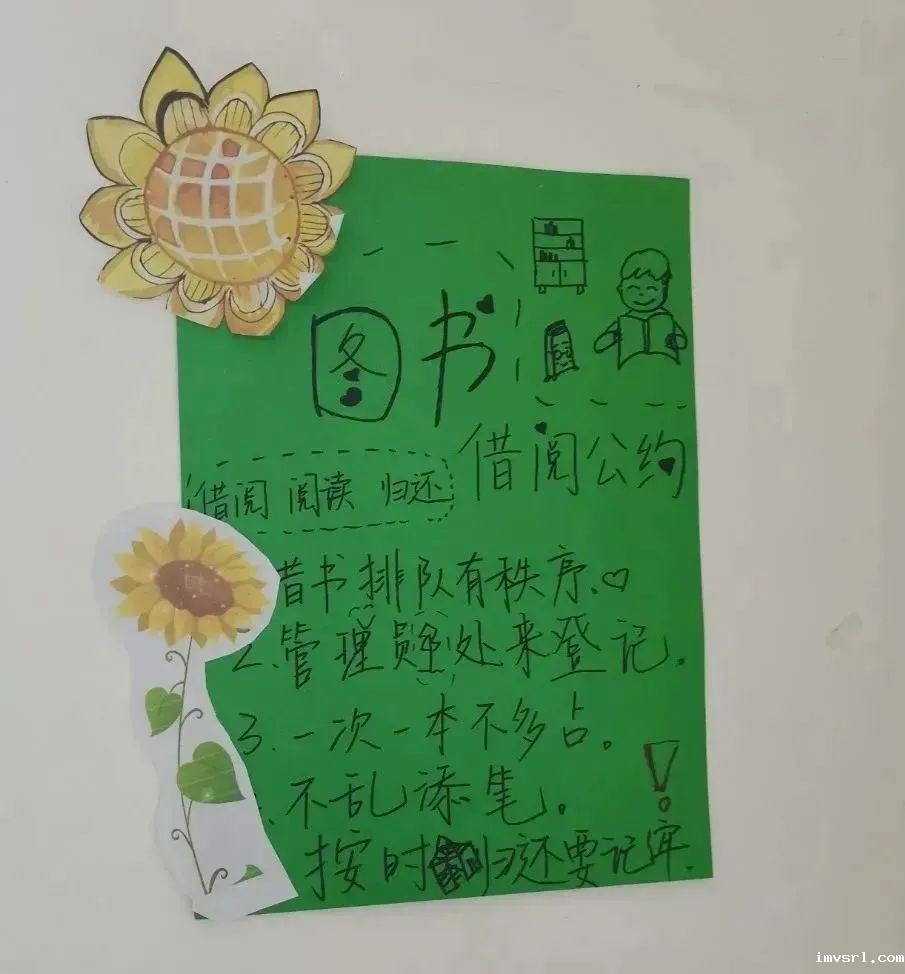 图书
借阅公约
借阅 阅读 归还
借书排队有秩序.
2.管理员处来登记.
3.一次一本不多占。
不乱添笔。
!
按时归还要记牢.
imvsrl.com